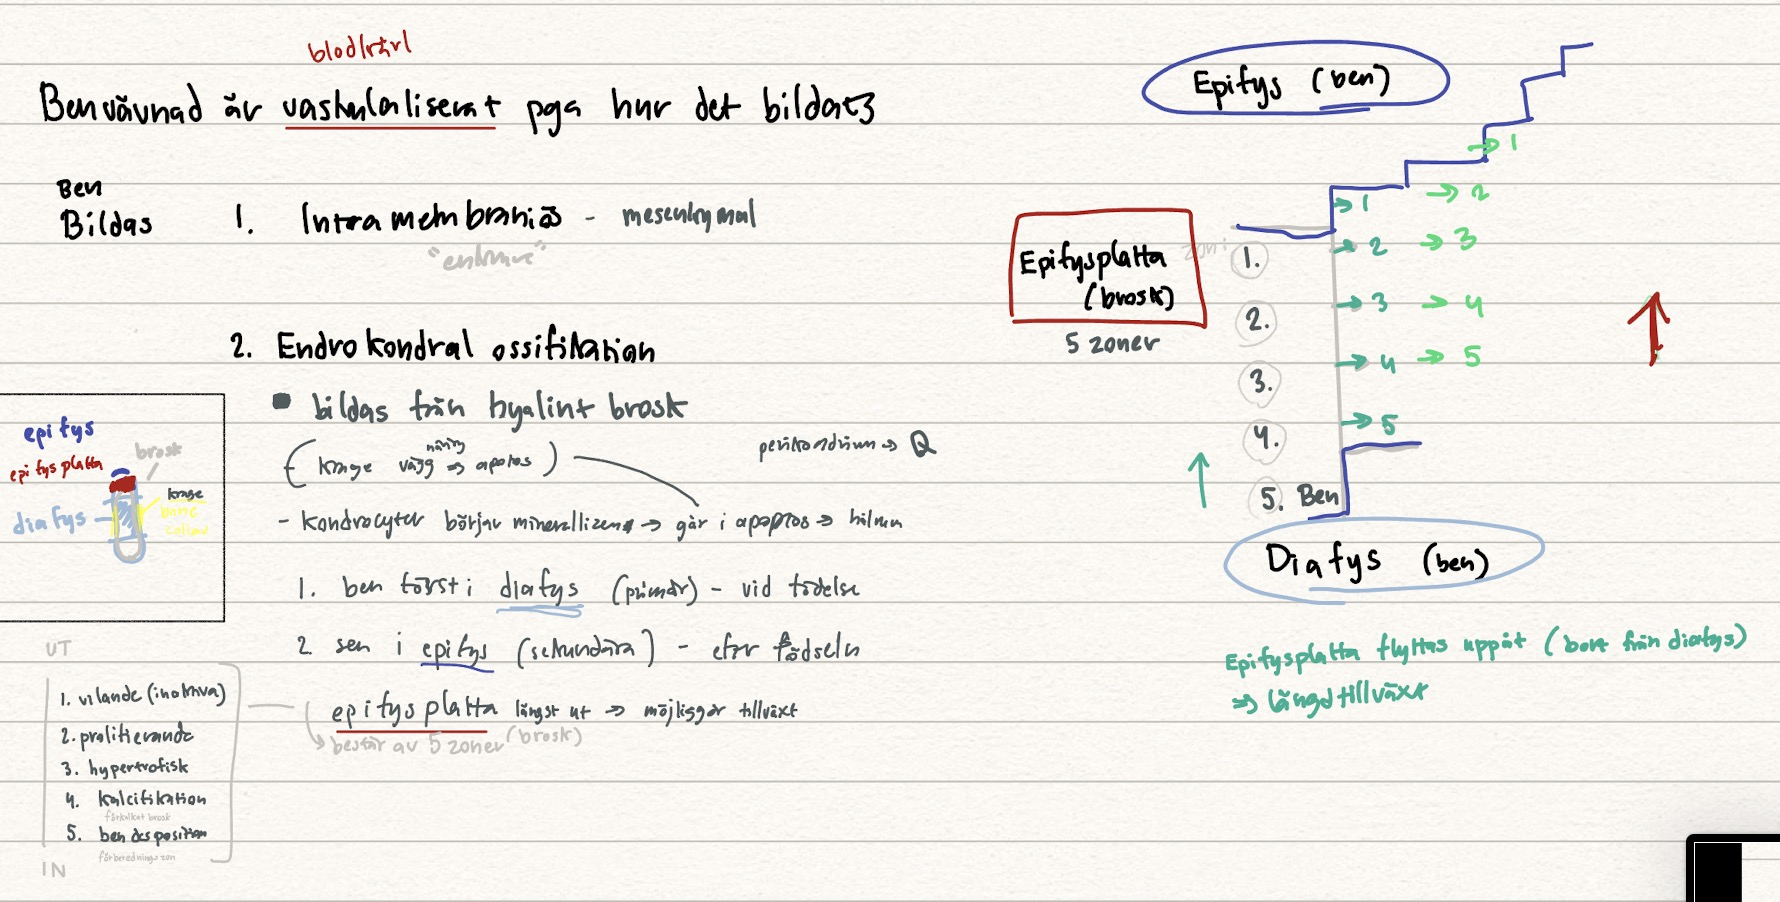 blodkärl
Benvävnad är vaskulaliserat pga hur det bildats
Ben
Bildas
1. Intramembraniös - mesenkymal
2. Endrokondral ossifikation
bildas från hyalint brosk
näring
(krage vägg => apotos)
perikondrium → Q
- kondrocyter börjar minerallisera → går i apoptos →
1. ben först i diafys (primär) - vid födelse
2. sen i epifys (sekundära) - efter födseln
epifysplatta längst ut → möjliggör tillväxt
består av 5 zoner (brosk)
epifys
brosk
epifysplatta
krage
bone
diafys
UT
1. vilande (inaktiva)
2. prolifierande
3. hypertrofisk
4. kalcifikation
förkalkat brosk
5. ben desposition
förberednings zon
IN
Epifys (ben)
Epifysplatta
(brosk)
5 zoner
zon:
1.
2.
3.
4.
5. Ben
→ 1
→ 2
→ 3
→ 4
→ 5
→ 1
→ 2
→ 3
→ 4
→ 5
Diafys (ben)
Epifysplatta flyttas uppåt (bort från diafys)
=> längdtillväxt